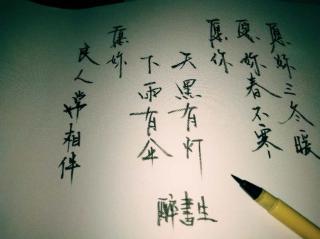 愿妳三冬暖
愿妳春不寒
愿你
天黑有灯
下雨有伞
愿妳
良人常相伴
醉書生